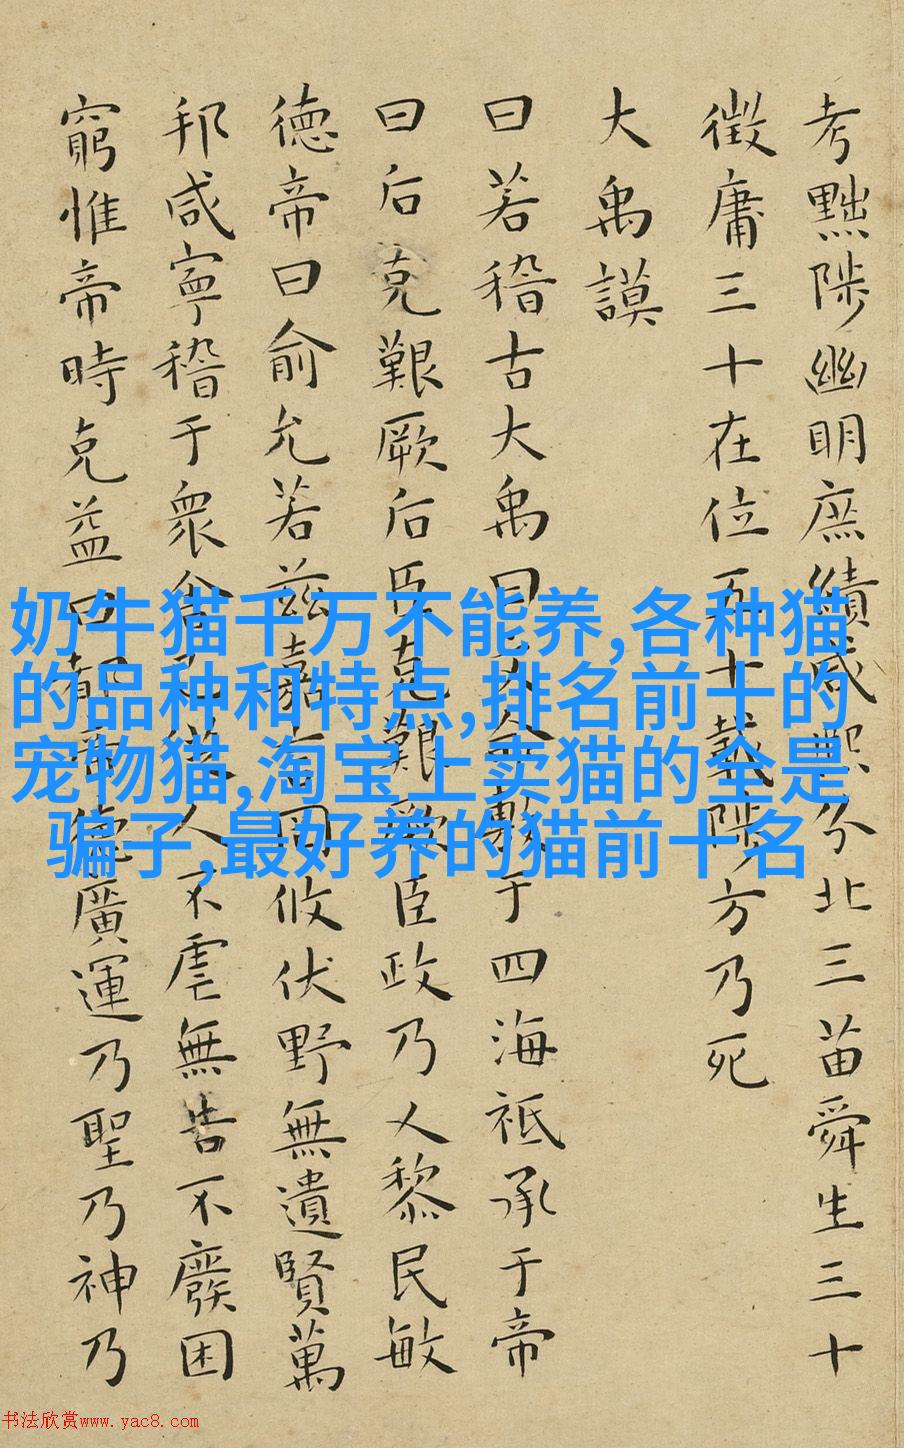 考黜陟幽明庶績咸熙分北三苗舜生三十
徵庸三十在位五十載陟方乃死
大禹謨
曰若稽古大禹曰文命敷于四海祗承于帝
曰后克艱厥后臣克艱厥臣政乃乂黎民敏
德帝曰俞允若茲嘉言罔攸伏野無遺賢萬
邦咸寧稽于衆舍己從人不虐無告不廢困
窮惟帝時克益曰都帝德廣運乃聖乃神乃
奶牛猫千万不能养,各种猫
的品种和特点,排名前十的
宠物猫,淘宝上卖猫的全是
骗子,最好养的猫前十名
书法欣赏www.yac8.com